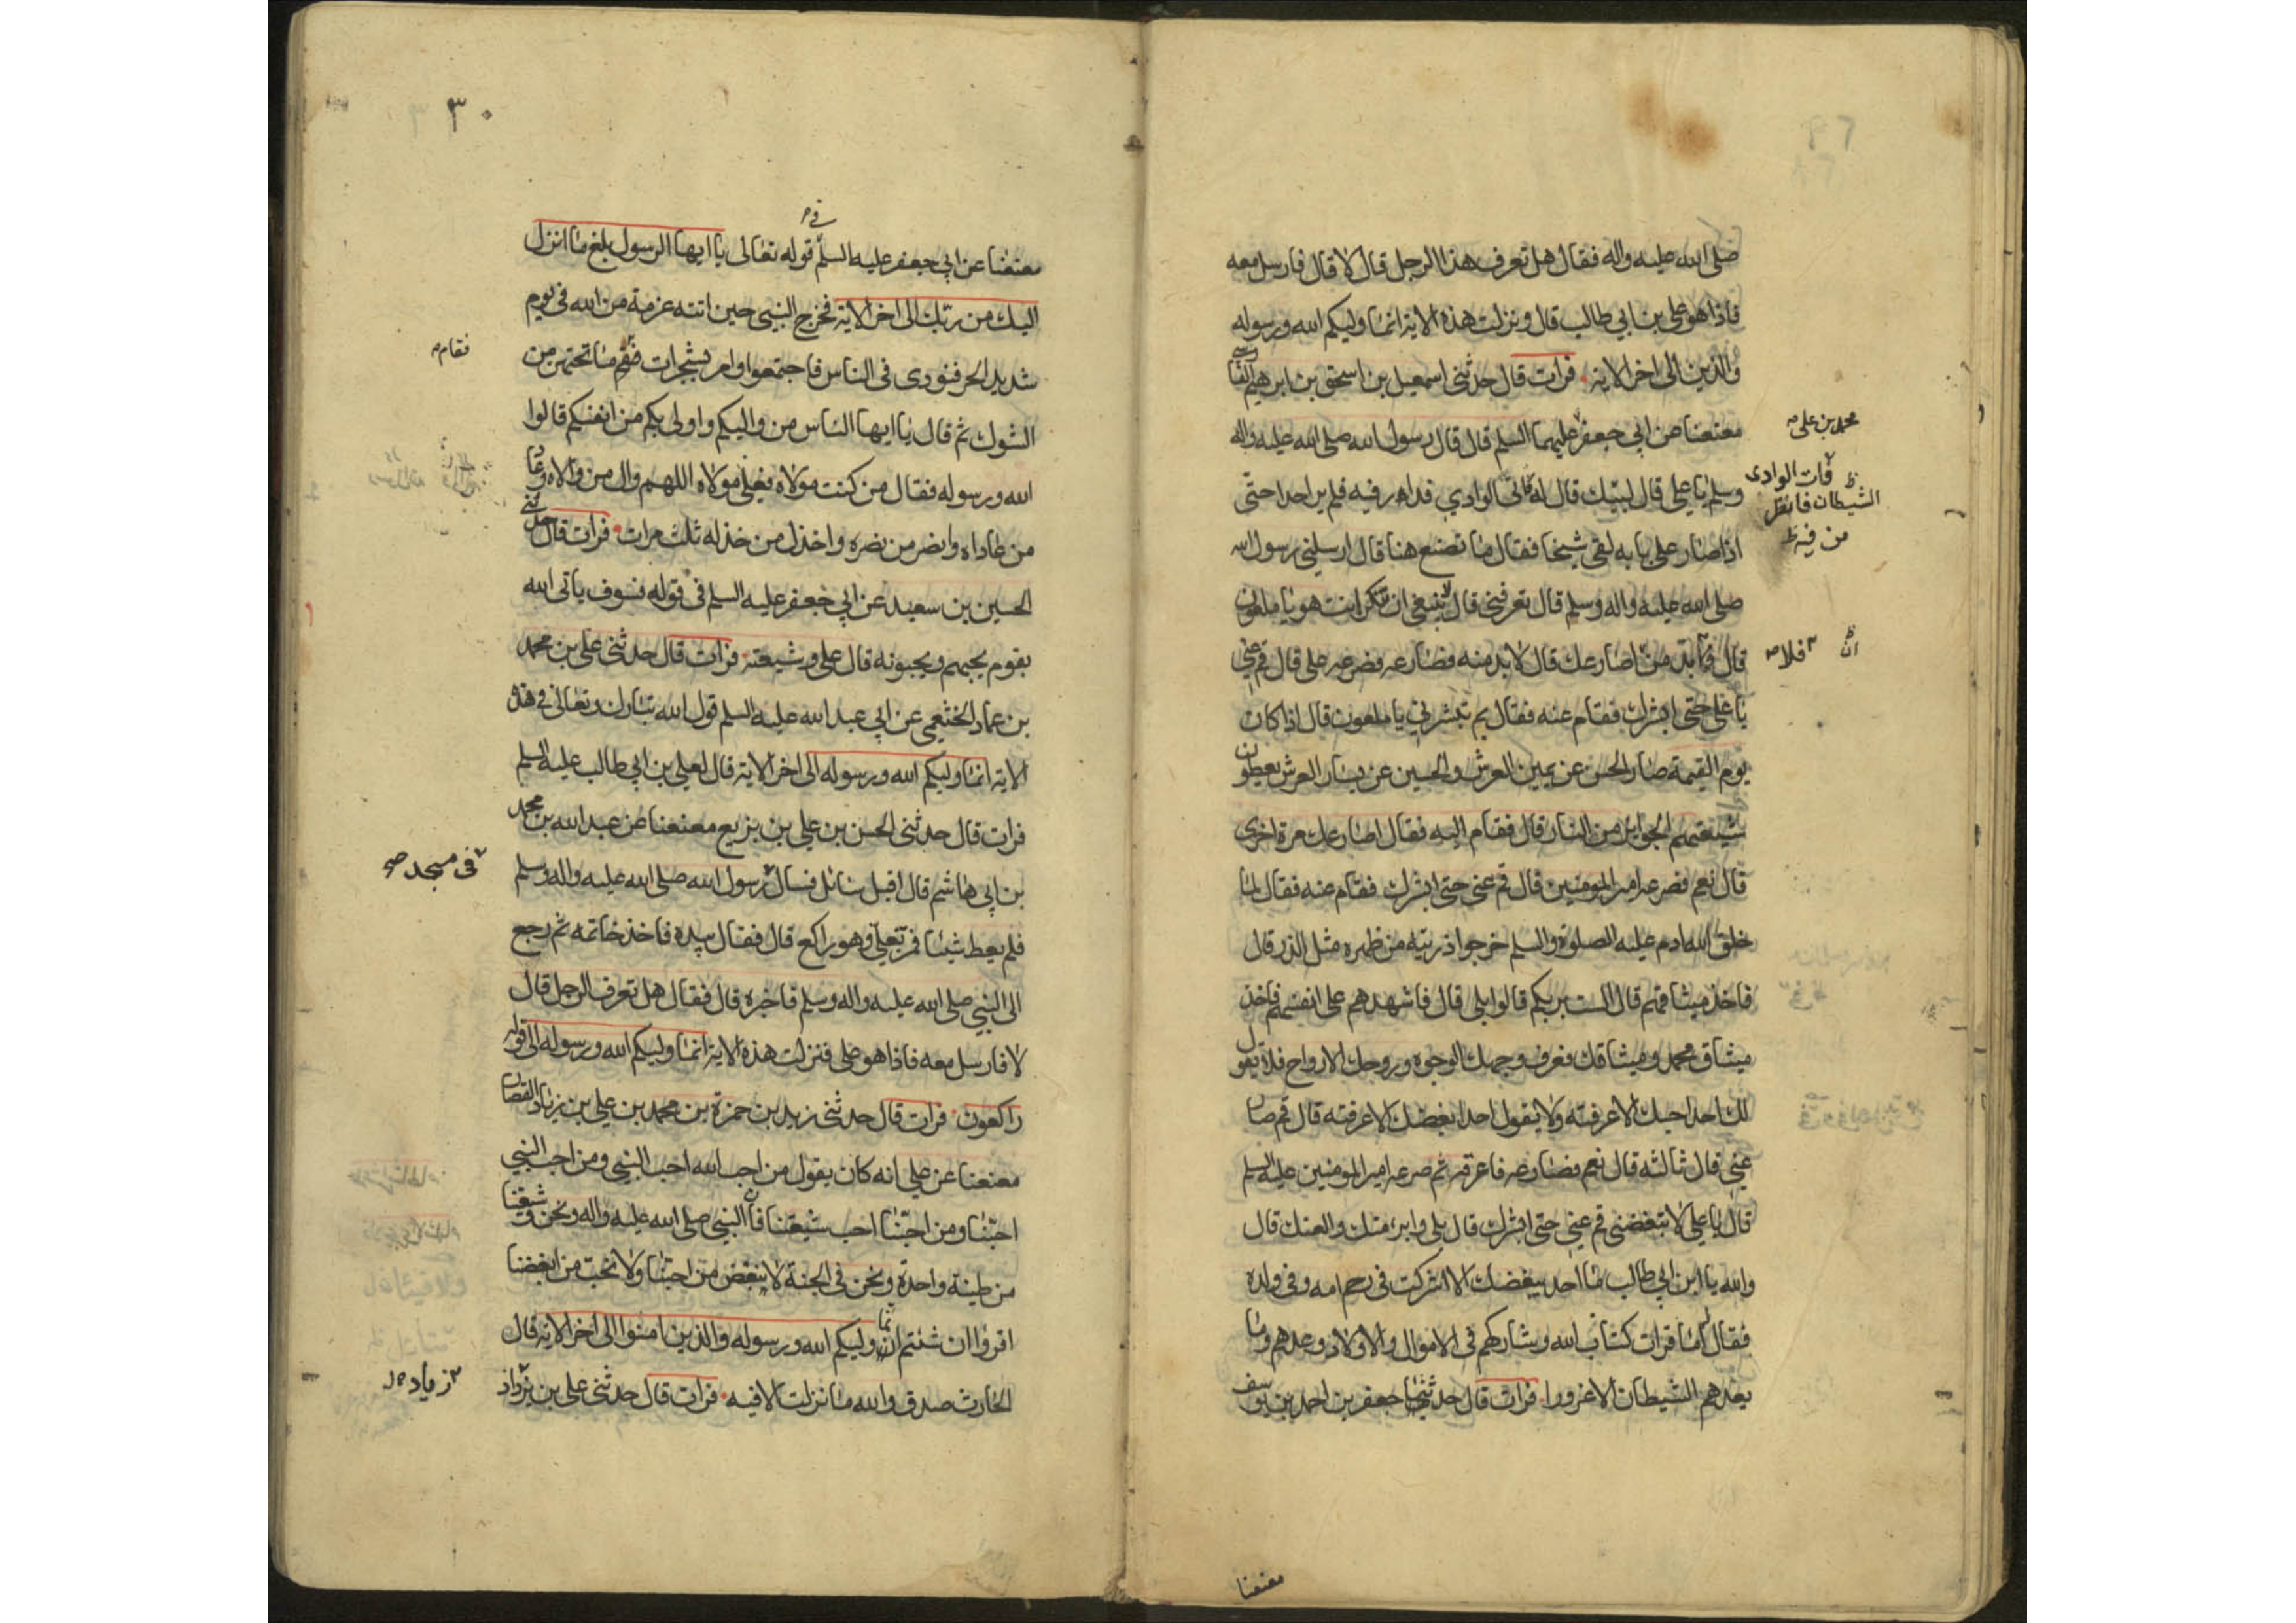 صلى الله عليه واله فقال هل تعرف هذا الرجل قال لا قال فارسل معه
فاذا هو علي بن ابي طالب قال ونزلت هذه الاية انما وليكم الله ورسوله
والذين الى اخر الاية فرات قال حدثني اسمعيل بن اسحق بن ابرهيم الفارسي
معنعنا عن ابي جعفر عليهما السلم قال قال رسول الله صلى الله عليه واله
محمد بن علي
وسلم يا علي قال لبيك قال له الوادي فدار فيه فلم ير احدا حتى
فات الوادى
الشيطان
من فيه
اذا صار على بابه لقي شيخا فقال ما تصنع هنا قال ارسلني رسول الله
صلى الله عليه واله وسلم قال تعرفني قال ينبغي ان تكون انت هو يا ملعون
قال بد من اصارعك قال لا بد منه فصارعه فصرعه علي قال قم عني
فلا
ان
يا علي حتى ابشرك فقام عنه فقال بم تبشرني يا ملعون قال اذا كان
يوم القيمة صار الحسن عن يمين العرش والحسين عن يسار العرش يعطون
شيعتهم الجوائز من النار قال فقام اليه فقال اصارعك مرة اخرى
قال نعم فصرعه امير المومنين قال قم عني حتى ابشرك فقام عنه فقال لما
خلق الله ادم عليه الصلوة والسلم خرجوا ذريته من ظهره مثل الذر قال
فاخذ ميثاقهم قال الست بربكم قالوا بلى قال فاشهدهم على انفسهم فاخذ
ميثاق محمد وميثاقك فعرف وجهك الوجوه وروحك الارواح فلا يقول
لك احد احبك الا عرفته ولا يقول احد ابغضك الا عرفته قال قم صار
عني قال ثالثه قال نعم فصارعه فاعرقه ثم صرعه امير المومنين عليه السلم
قال يا علي لا تبغضني قم عني حتى ابشرك قال بلى وابرء منك والعنك قال
والله يا ابن ابي طالب ما احد يبغضك الا اشركت في رحم امه وفي ولده
فقال اما قرات كتاب الله وشاركهم في الاموال والاولاد وعدهم وما
يعدهم الشيطان الا غرورا فرات قال حدثني جعفر بن احمد بن يوسف
معنعنا
٣٠
معنعنا عن ابي جعفر عليه السلم في قوله تعالى يا ايها الرسول بلغ ما انزل
اليك من ربك الى اخر الاية فخرج النبي حين اتته عزمة من الله في يوم
شديد الحر فنودى في الناس فاجتمعوا وامر بشجرات فقم ما تحتهن من
فقام
الشوك ثم قال يا ايها الناس من وليكم واولى بكم من انفسكم قالوا
الله ورسوله فقال من كنت مولاه فعلي مولاه اللهم وال من والاه وعاد
من عاداه وانصر من نصره واخذل من خذله ثلث مرات فرات قال حدثني
الحسين بن سعيد عن ابي جعفر عليه السلم في قوله فسوف ياتي الله
بقوم يحبهم ويحبونه قال علي وشيعته فرات قال حدثني علي بن محمد
بن عماد الخثعمي عن ابي عبد الله عليه السلم قول الله تبارك وتعالى في هذه
الاية انما وليكم الله ورسوله الى اخر الاية قال لعلي بن ابي طالب عليه السلم
فرات قال حدثني الحسن بن علي بن بزيع معنعنا عن عبد الله بن محمد
بن ابي هاشم قال اقبل سائل فسال رسول الله صلى الله عليه واله وسلم
في مسجد
فلم يعط شيئا فمر بعلي وهو راكع قال فقال بيده فاخذ خاتمه ثم رجع
الى النبي صلى الله عليه واله وسلم فاخبره قال فقال هل تعرف الرجل قال
لا فارسل معه فاذا هو علي فنزلت هذه الاية انما وليكم الله ورسوله الى قوله
راكعون فرات قال حدثني زيد بن حمزة بن محمد بن علي بن زياد القصار
معنعنا عن علي انه كان يقول من احب الله احب النبي ومن احب النبي
احبنا ومن احبنا احب شيعتنا فان النبي صلى الله عليه واله ونحن وشيعتنا
من طينة واحدة ونحن في الجنة لا نبغض من احبنا ولا نحب من ابغضنا
اقروا ان شئتم انما وليكم الله ورسوله والذين امنوا الى اخر الاية قال
الحارث صدق والله ما نزلت الا فيه فرات قال حدثني علي بن يزداد
زياد